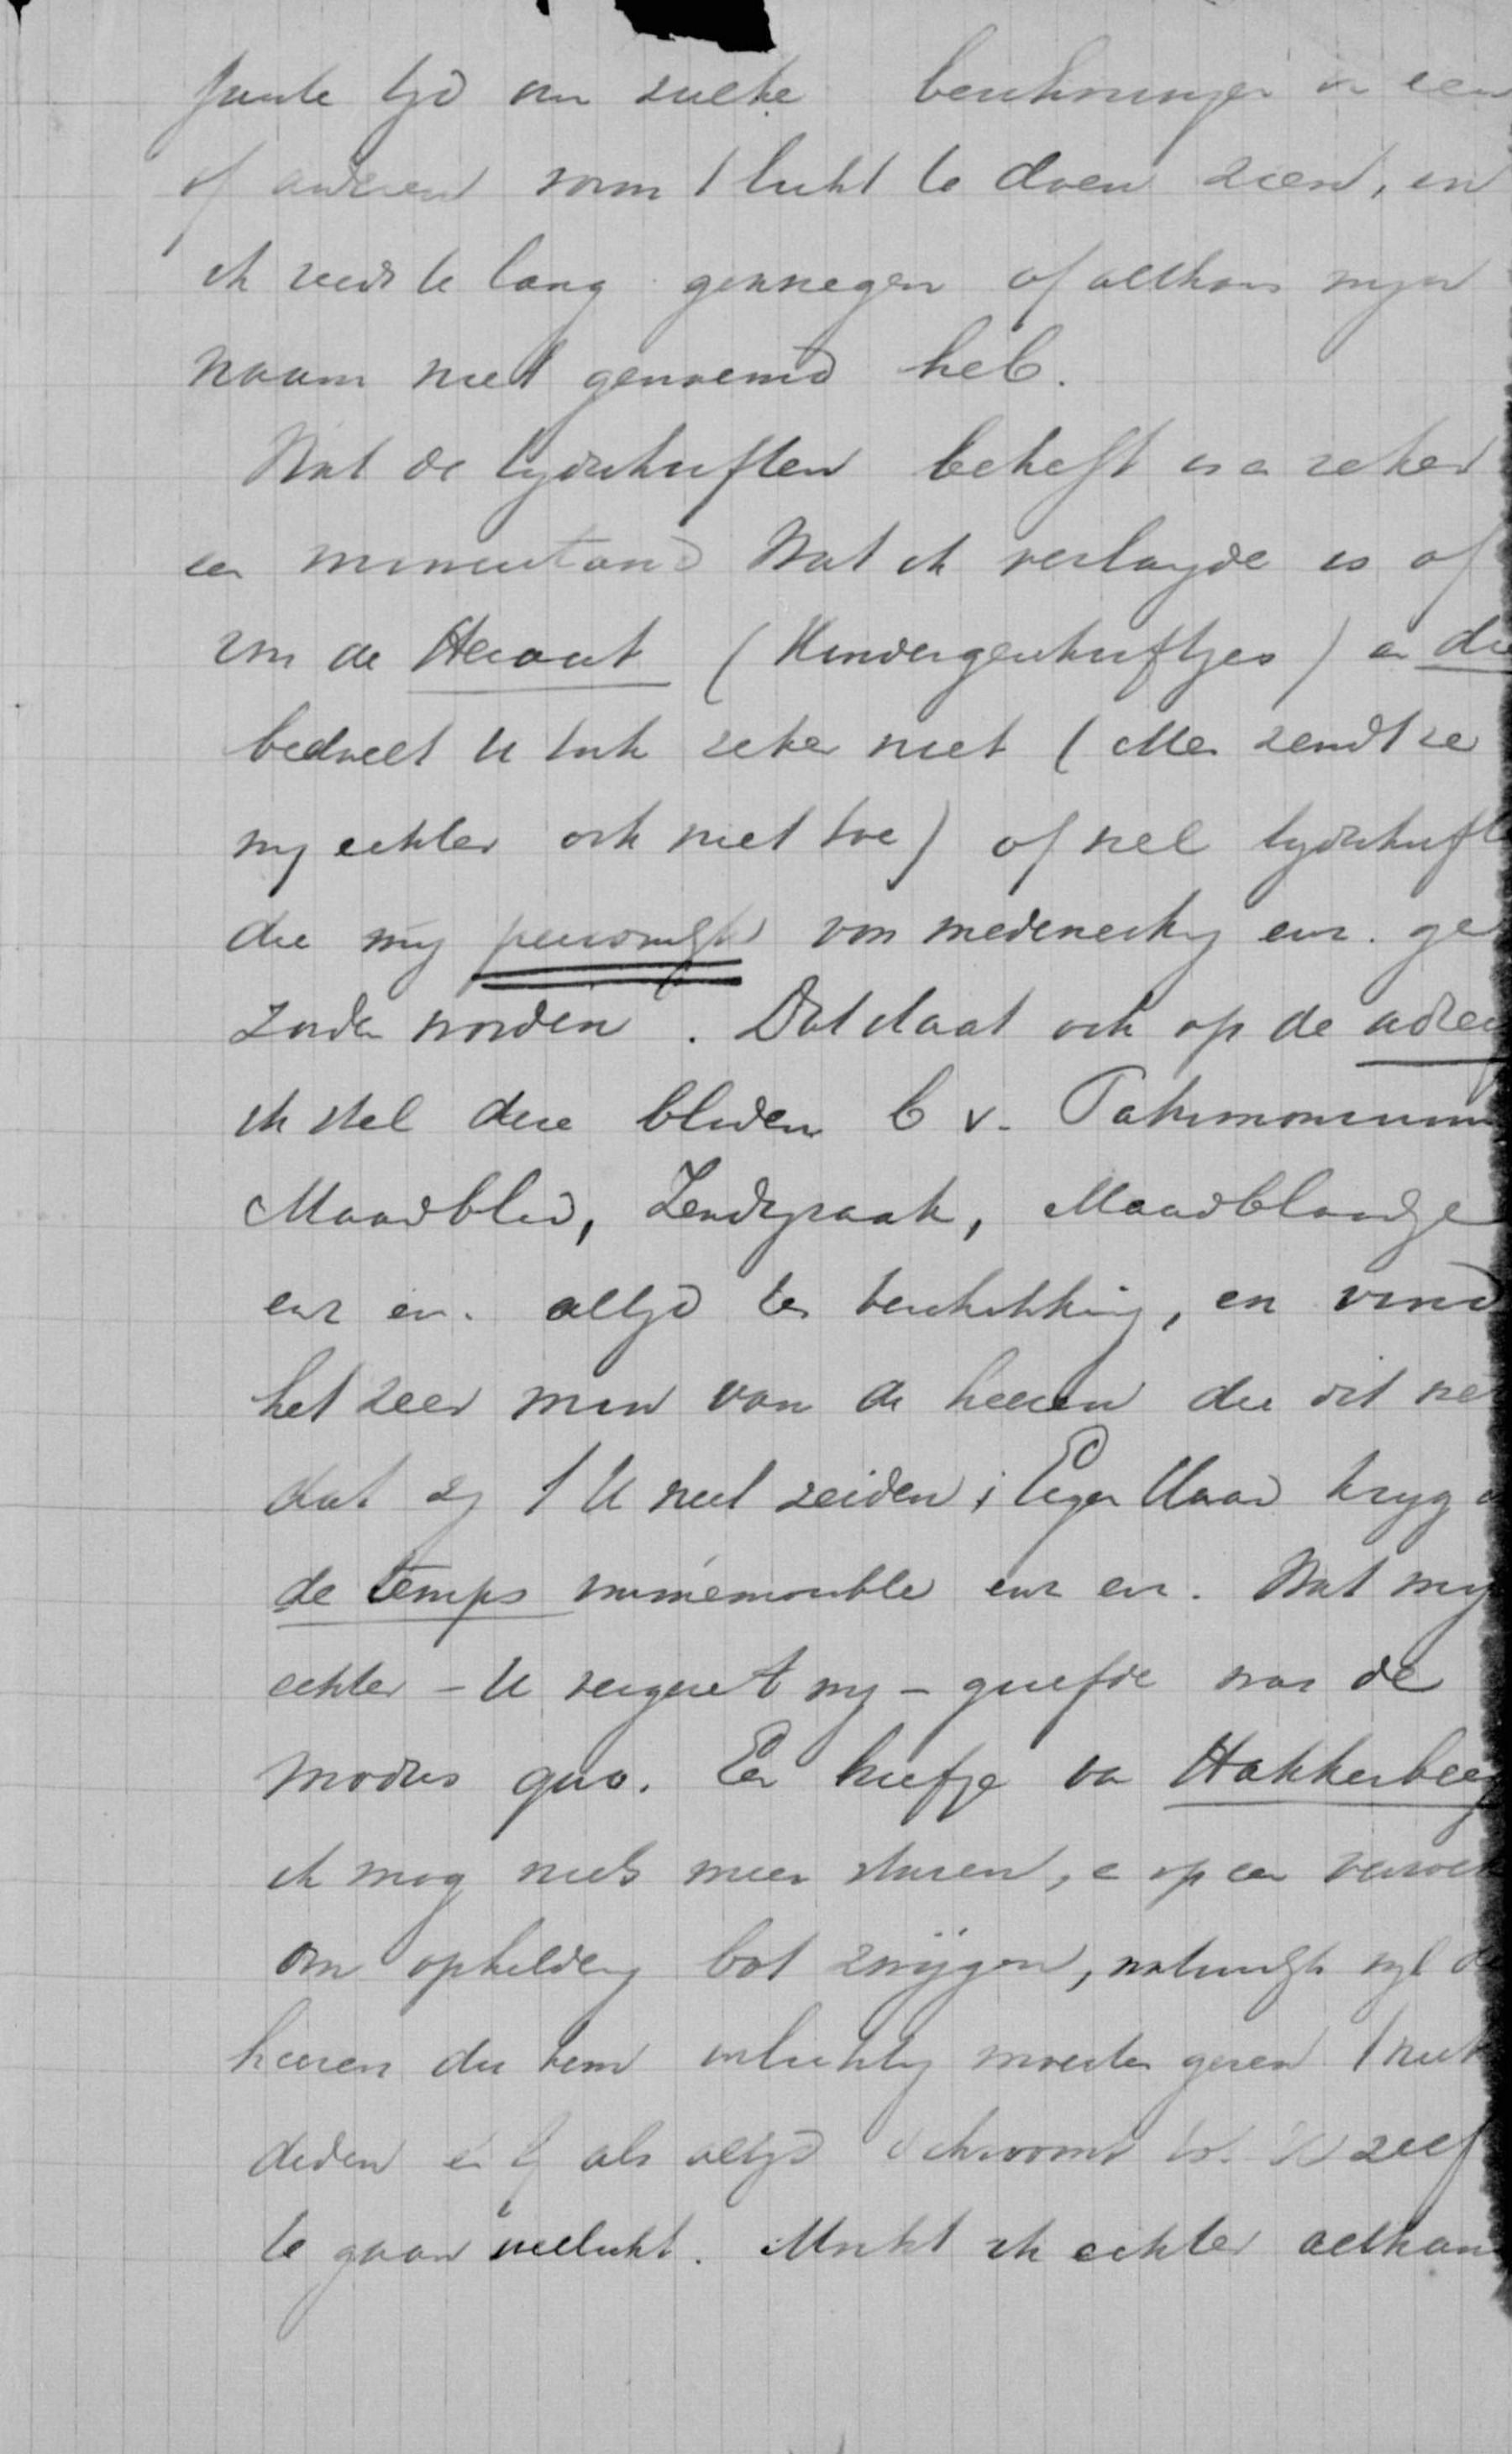 juiste tijd om zulke beschouwingen in een
of anderen vorm 't licht te doen zien, en
ik reeds te lang gezwegen of althans mijn
naam niet genoemd heb.
Wat de tijdschriften betreft is er zeker
een misverstand Wat ik verlangde is of
van de Heraut (Kindergeschriftjes) en die
bedoelt U toch zeker niet (Men zendt ze
mij echter ook niet toe) of wel tijdschrift
die mij persoonlijk voor medewerking enz. ge
zonden worden. Dat staat ook op de adres
ik stel deze bladen b v. Patrimonium
Maandblad, Maandblaadje
enz en. altijd ter beschikking, en vind
het zeer min van de heeren die dit
dat zij 't U niet zeiden; Eigen Haard krijg
de temps immémorable enz en. Wat mij
echter - U vergeet mij - griefde was de
modus quo. Een briefje van Hakkerberg
ik mag niets meer sturen, en op een verzoek
om opheldering bot zwijgen, natuurlijk wijl de
heeren die hem inlichting moesten geven 't niet
deden en hij als altijd schroomt tot U zelf
te gaan wellicht. Mocht ik echter althans